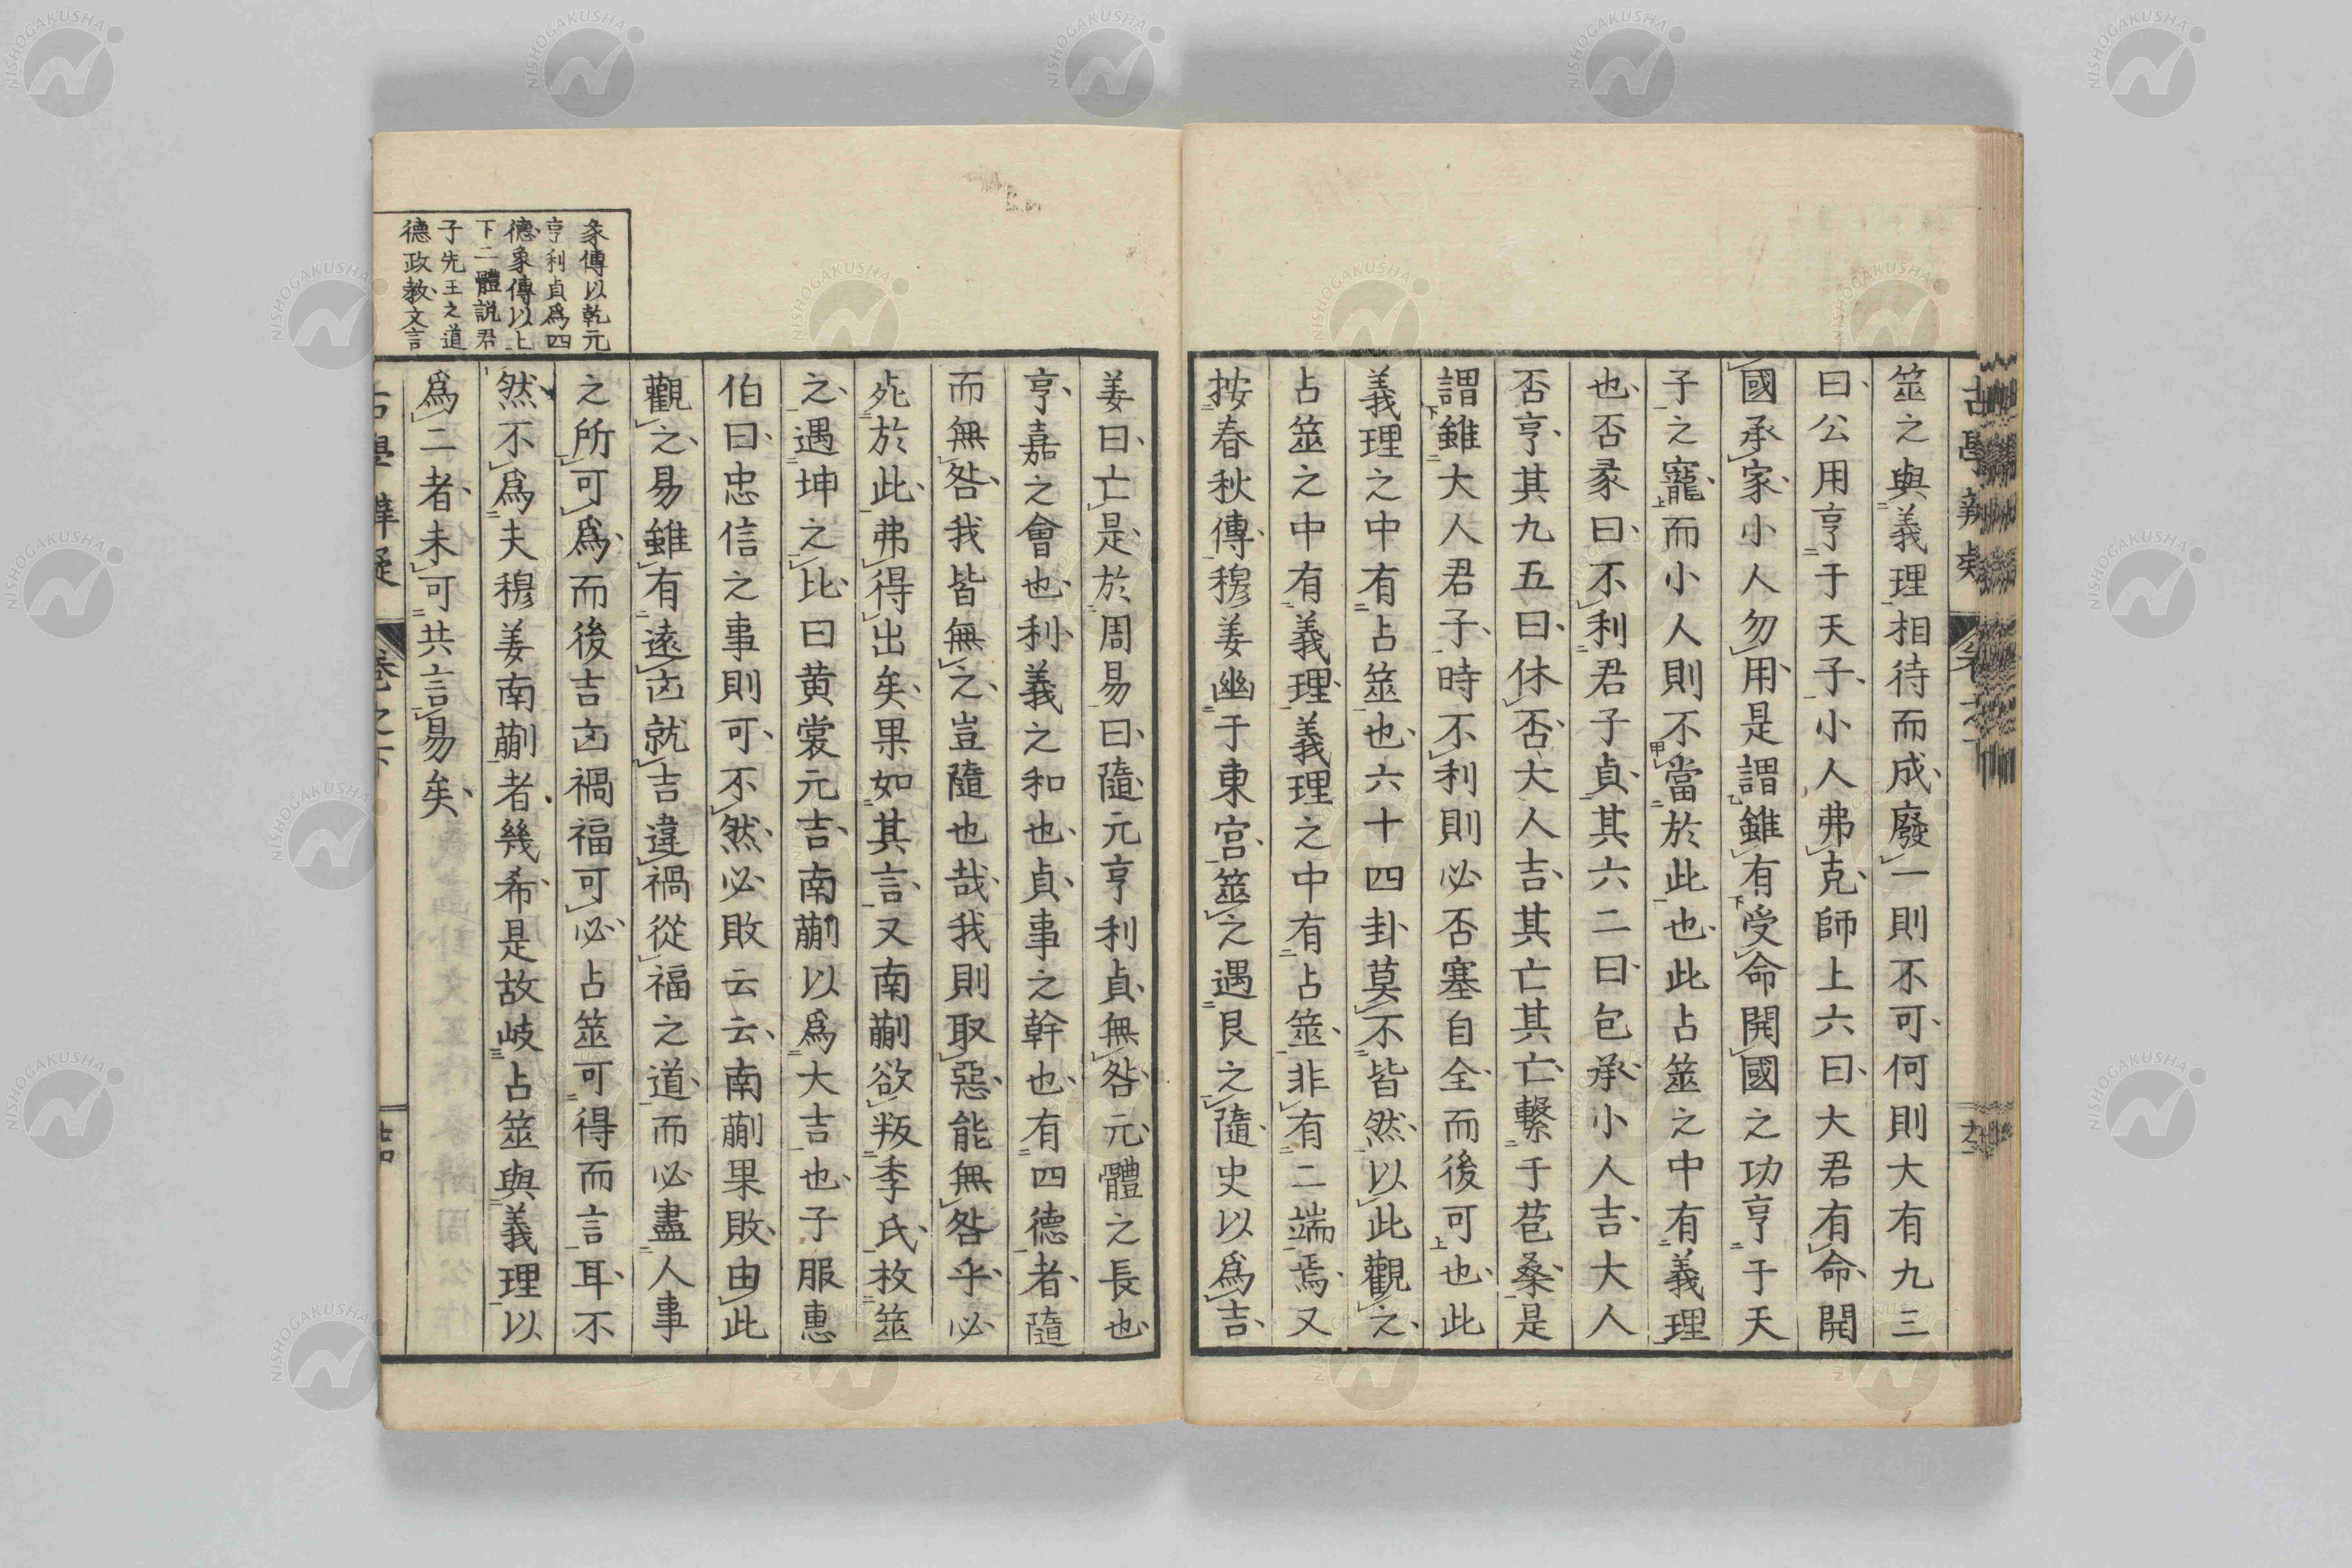 筮之與義理相待而成、廢一則不可、何則大有九三
曰、公用亨于天子、小人弗克、師上六曰、大君有命、開
國承家、小人勿用、是謂雖有受命開國之功亨于天
子之寵、而小人則不當於此也、此占筮之中有義理
也、否彖曰、不利君子貞、其六二曰、包承、小人吉、大人
否亨、其九五曰、休否、大人吉、其亡其亡、繫于苞桑、是
謂雖大人君子、時不利則必否塞自全而後可也、此
義理之中有占筮也、六十四卦莫不皆然、以此觀之、
占筮之中有義理、義理之中有占筮、非有二端焉、又
按春秋傳、穆姜幽于東宮、筮之遇艮之隨、史以為吉、
姜曰、亡、是於周易曰、隨元亨利貞、無咎、元、體之長也、
亨、嘉之會也、利、義之和也、貞、事之幹也、有四德者、隨
而無咎、我皆無之、豈隨也哉、我則取惡、能無咎乎、必
死於此、弗得出矣、果如其言、又南蒯欲叛季氏、枚筮
之、遇坤之比、曰黃裳元吉、南蒯以爲大吉也、子服惠
伯曰、忠信之事則可、不然必敗云云、南蒯果敗、由此
觀之、易雖有遠凶就吉違禍從福之道、而必盡人事
之所可爲、而後吉凶禍福可必、占筮可得而言耳、不
然不爲夫穆姜南蒯者幾希、是故岐占筮與義理以
爲二者、未可共言易矣、
彖傳以乾元
亨利貞爲四
德、象傳以上
下二體説君
子先王之道
德政教、文言
古學辨疑
卷之下
NISHOGAKUSHA